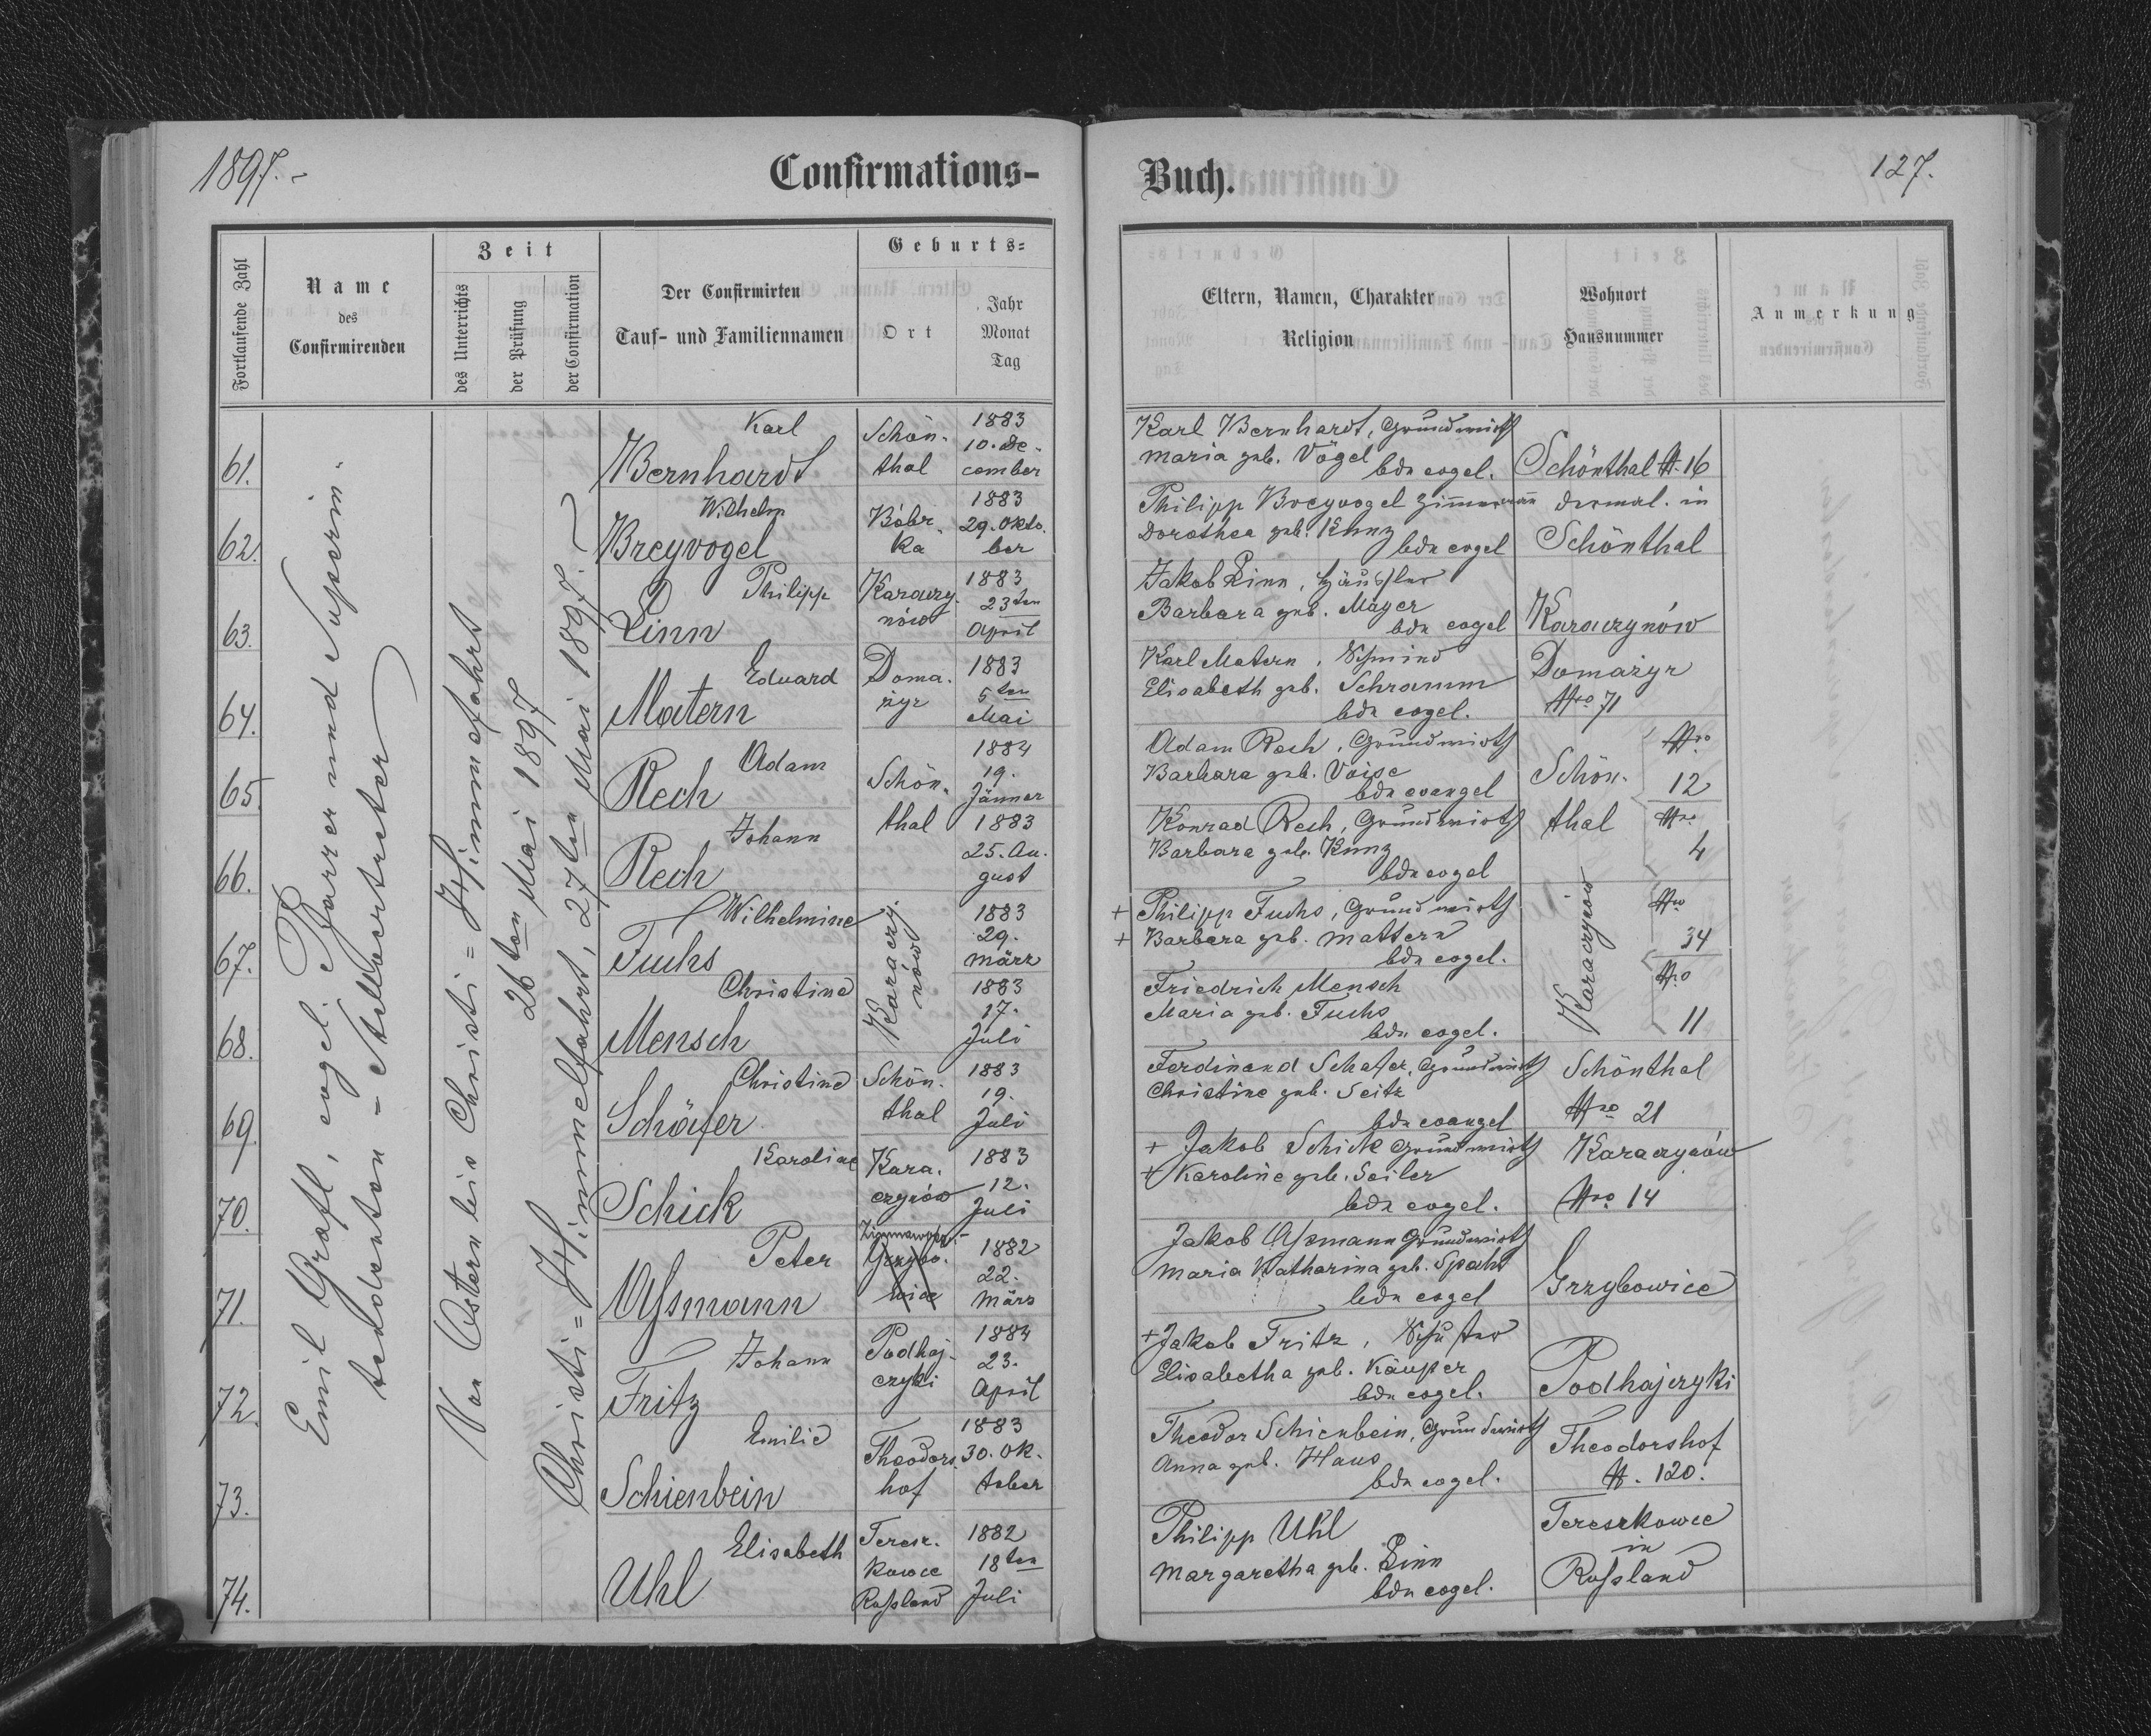 1897.-
Confirmations-
Buch.
127.
Fortlaufende Zahl
Name
des
Confirmirenden
Zeit
des Unterrichts
der Prüfung
der Confirmation
Der Confirmirten
Tauf- und Familiennamen
Geburts=
Ort
Jahr
Monat
Tag
Eltern, Namen, Charakter
Religion
Wohnort
Hausnummer
Anmerkung
Emil Grafl, evgel. Pfarrer und Superin-
tendenten-Stellvertreter
Von Ostern bis Christi=Himmelfahrt
26ten Mai 1897
Christi=Himmelfahrt, 27ten Mai 1897.
61.
Karl
Bernhardt
Schön-
thal
1883
10. De-
cember
Karl Bernhardt, Grundwirth
Maria geb. Vögel
bde evgel.
Schönthal N. 16
62.
Wilhelm
Breyvogel
Bóbr-
ka
1883
29. Okto-
ber
Philipp Breyvogel Zimmermann
Dorothea geb. Kunz
bde evgel
dermal. in
Schönthal
63.
Philipp
Linn
Karaczy-
nów
1883
23ten
April
Jakob Linn, Häusler
Barbara geb. Mayer
bde evgel
Karaczynów
64.
Eduard
Matern
Doma-
żyr
1883
5ten
Mai
Karl Matern, Schmied
Elisabeth geb. Schramm
bde evgel.
Domażyr
Nro 71
65.
Adam
Rech
Schön-
1884
19.
Jänner
Adam Rech, Grundwirth
Barbara geb. Voise
bde evangel
Schön-
Nro
12
66.
Johann
Rech
thal
1883
25. Au-
gust
Konrad Rech, Grundwirth
Barbara geb. Kunz
bde evgel
thal
Nro
4
67.
Wilhelmine
Fuchs
Karaczy-
nów
1883
29.
März
+ Philipp Fuchs, Grundwirth
+ Barbara geb. Mattern
bde evgel.
Karaczynow
Nro
34
68.
Christine
Mensch
1883
17.
Juli
Friedrich Mensch
Maria geb. Fuchs
bde evgel.
Nro
11
69.
Christine
Schäfer
Schön-
thal
1883
19.
Juli
Ferdinand Schäfer, Grundwirth
Christine geb. Seitz
bde evangel
Schönthal
Nro 21
70.
Karoline
Schick
Kara-
czynów
1883
12.
Juli
+ Jakob Schick Grundwirth
+ Karoline geb. Seiler
bde evgel.
Karaczynów
Nro 14
71.
Peter
Aßmann
Zimnawoda-
Grzybo-
wice
1882
22.
März
Jakob Aßmann Grundwirth
Maria Katharina geb. Spaht
bde evgel
Grzybowice
72.
Johann
Fritz
Podhaj-
czyki
1884
23.
April
+ Jakob Fritz, Schuster
Elisabetha geb. Käußer
bde evgel.
Podhajczyki
73.
Emilie
Schienbein
Theodors-
hof
1883
30. Ok-
tober
Theodor Schienbein, Grundwirth
Anna geb. Haus
bde evgel.
Theodorshof
N. 120.
74.
Elisabeth
Uhl
Teresz-
kowce
Rußland
1882
18ten
Juli
Philipp Uhl
Margaretha geb. Linn
bde evgel.
Tereszkowce
in
Rußland